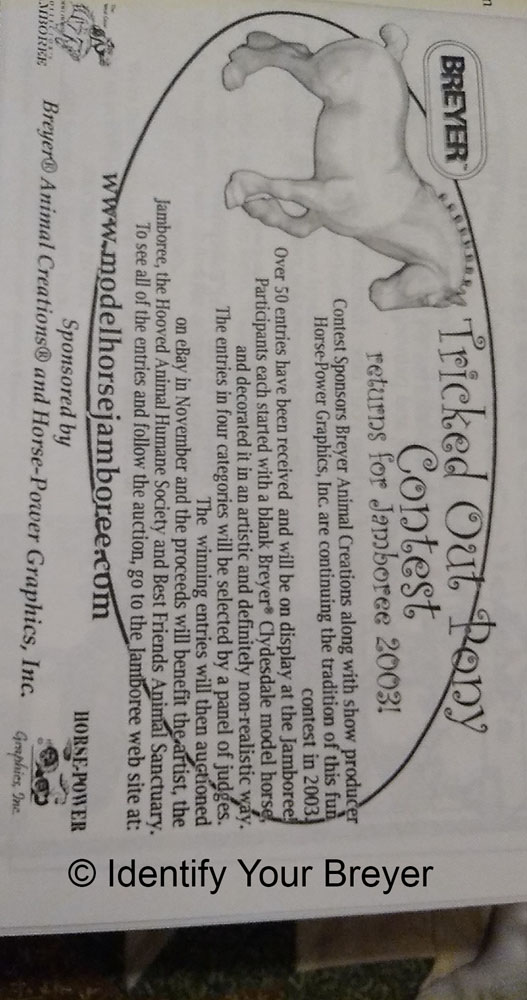 BREYER™
Tricked Out Pony
Contest
returns for Jamboree 2003!
Contest Sponsors Breyer Animal Creations along with show producer
Horse-Power Graphics, Inc. are continuing the tradition of this fun
contest in 2003.
Over 50 entries have been received and will be on display at the Jamboree!
Participants each started with a blank Breyer® Clydesdale model horse,
and decorated it in an artistic and definitely non-realistic way.
The entries in four categories will be selected by a panel of judges.
The winning entries will then auctioned
on eBay in November and the proceeds will benefit the artist, the
Jamboree, the Hooved Animal Humane Society and Best Friends Animal Sanctuary.
To see all of the entries and follow the auction, go to the Jamboree web site at:
www.modelhorsejamboree.com
Sponsored by
Breyer® Animal Creations® and Horse-Power Graphics, Inc.
HORSE-POWER
Graphics, Inc.
© Identify Your Breyer